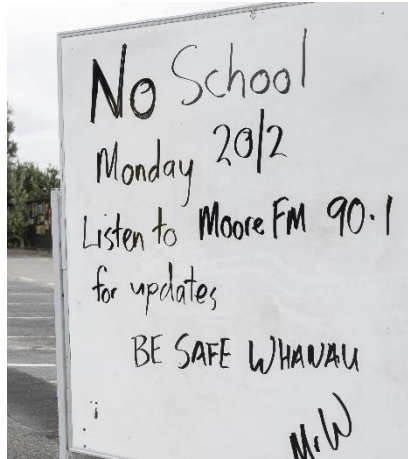 No School
Monday 20/2
Listen to Moore FM 90.1
for updates
BE SAFE WHANAU
Mr W